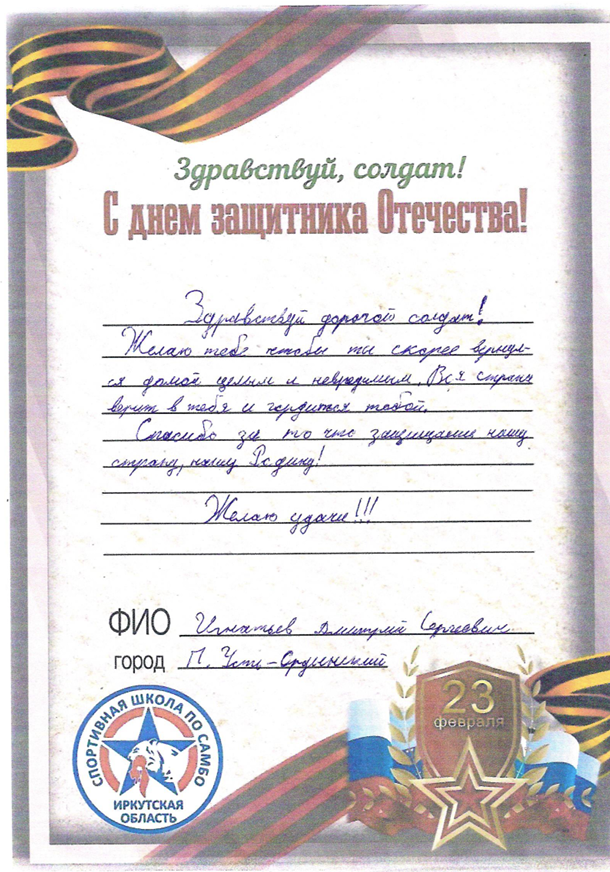 Здравствуй, солдат!
С днем защитника Отечества!
Здравствуй дорогой солдат!
Желаю тебе чтобы ты скорее вернул-
ся домой целым и невредимым. Вся страна
верит в тебя и гордиться тобой.
Спасибо за то что защищаешь нашу
страну, нашу Родину!
Желаю удачи!!!
ФИО Игнатьев Дмитрий Сергеевич
город П. Усть-Ордынский
23
февраля
СПОРТИВНАЯ ШКОЛА ПО САМБО
ИРКУТСКАЯ
ОБЛАСТЬ